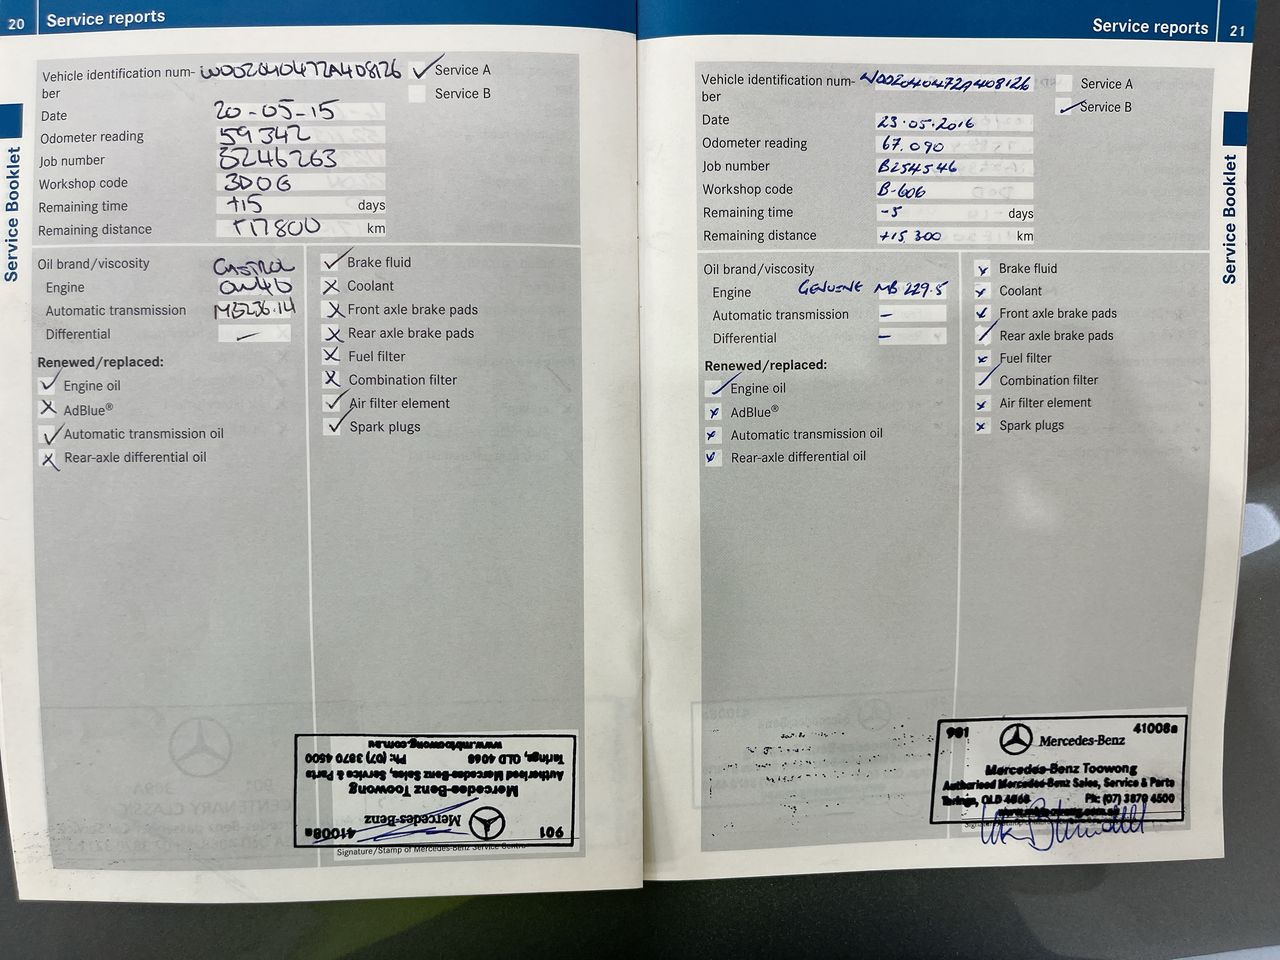 20 Service reports
Vehicle identification num- WDD2040472A408126
ber
✓ Service A
Service B
Date 20-05-15
Odometer reading 59342
Job number 8246263
Workshop code 3DOG
Remaining time +15 days
Remaining distance +17800 km
Oil brand/viscosity CASTROL
Engine 0W40
Automatic transmission MB236.14
Differential —
Renewed/replaced:
✓ Engine oil
X AdBlue®
✓ Automatic transmission oil
X Rear-axle differential oil
✓ Brake fluid
X Coolant
X Front axle brake pads
X Rear axle brake pads
X Fuel filter
X Combination filter
✓ Air filter element
✓ Spark plugs
901 41008a
Mercedes-Benz
Mercedes-Benz Toowong
Authorised Mercedes-Benz Sales, Service & Parts
Taringa, QLD 4068 Ph: (07) 3870 4500
www.mbtoowong.com.au
Signature/Stamp of Mercedes-Benz Service Centre
Service Booklet
Service reports 21
Vehicle identification num- WDD2040472A408126
ber
Service A
✓ Service B
Date 23.05.2016
Odometer reading 67.090
Job number B254546
Workshop code B-606
Remaining time -5 days
Remaining distance +15 300 km
Oil brand/viscosity
Engine GENUINE MB 229.5
Automatic transmission —
Differential —
Renewed/replaced:
✓ Engine oil
X AdBlue®
X Automatic transmission oil
X Rear-axle differential oil
X Brake fluid
X Coolant
X Front axle brake pads
✓ Rear axle brake pads
X Fuel filter
✓ Combination filter
X Air filter element
X Spark plugs
901 41008a
Mercedes-Benz
Mercedes-Benz Toowong
Authorised Mercedes-Benz Sales, Service & Parts
Taringa, QLD 4068 Ph: (07) 3870 4500
Service Booklet